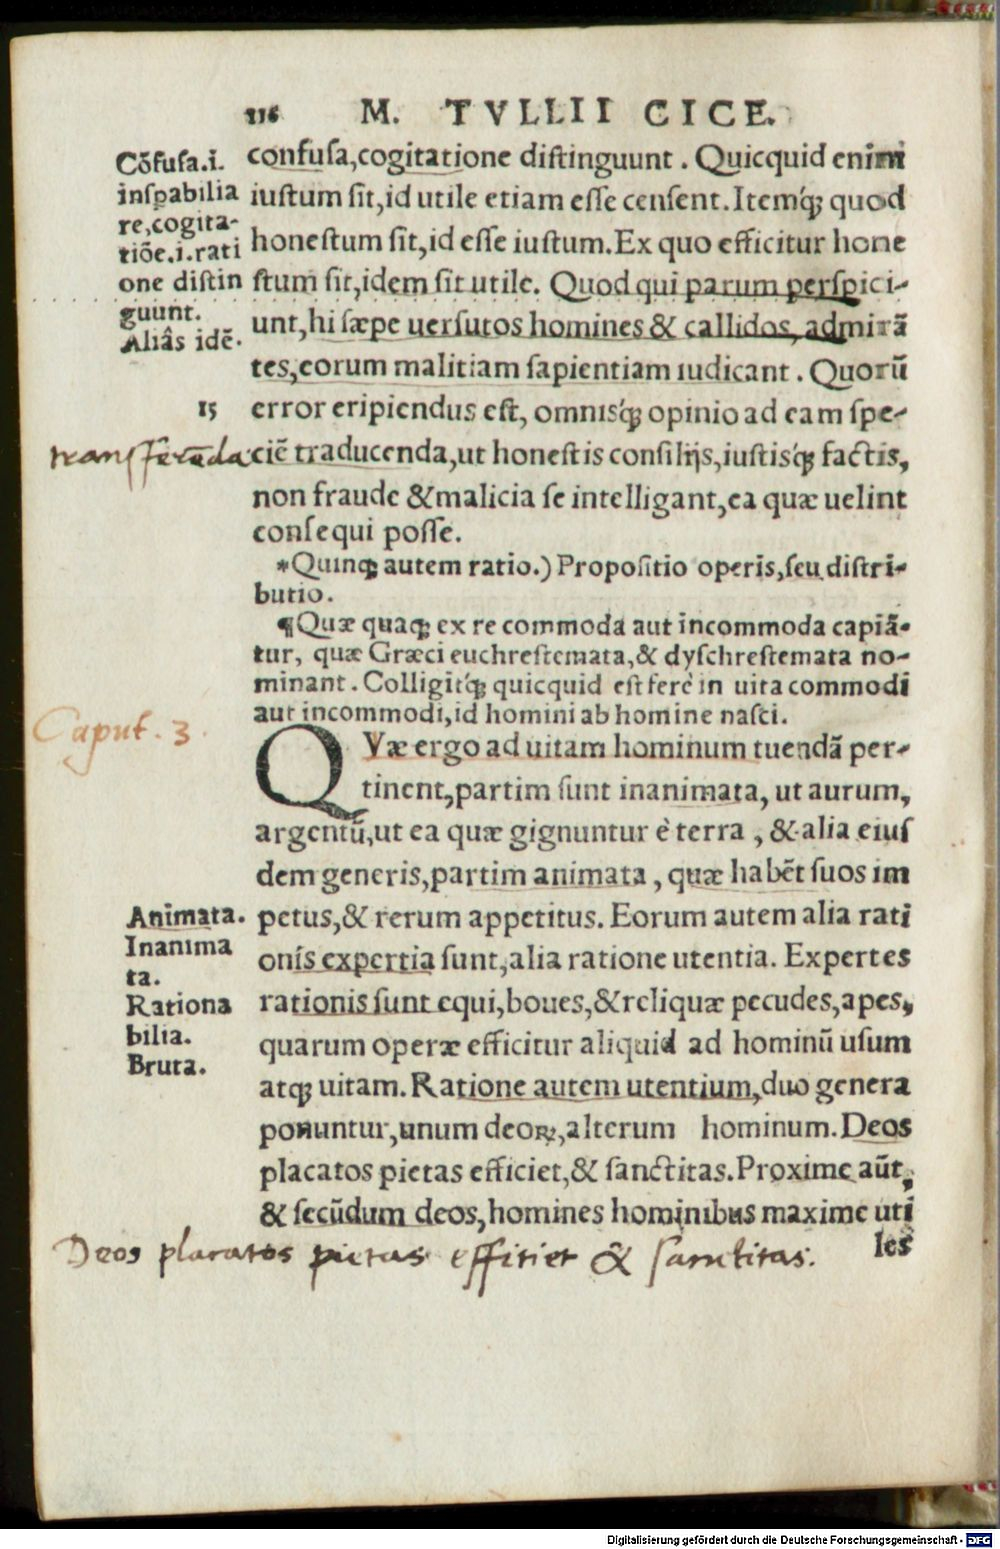 116 M. TVLLII CICE.
Cõfusa.i.
inspabilia
re,cogita-
tiõe.i.rati
one distin
guunt.
Aliâs idẽ.
confusa,cogitatione distinguunt. Quicquid enim
iustum sit,id utile etiam esse censent.Itemq́ꝫ quod
honestum sit,id esse iustum.Ex quo efficitur hone
stum sit,idem sit utile. Quod qui parum perspici-
unt,hi sæpe uersutos homines & callidos, admirã
tes,eorum malitiam sapientiam iudicant. Quorũ
15 error eripiendus est, omnisq́ꝫ opinio ad eam spe-
transferẽda
ciẽ traducenda,ut honestis consilijs,iustisq́ꝫ factis,
non fraude &malicia se intelligant,ea quæ uelint
consequi posse.
*Quinqꝫ autem ratio.) Propositio operis,seu distri-
butio.
¶Quæ quaqꝫ ex re commoda aut incommoda capiã-
tur, quæ Græci euchrestemata,& dyschrestemata no-
minant. Colligitq́ꝫ quicquid est ferè in uita commodi
aut incommodi,id homini ab homine nasci.
Caput. 3.
QVæ ergo ad uitam hominum tuendã per-
tinent,partim sunt inanimata, ut aurum,
argentũ,ut ea quæ gignuntur è terra, & alia eius
dem generis,partim animata, quæ habẽt suos im
Animata.
Inanima
ta.
Rationa
bilia.
Bruta.
petus,& rerum appetitus. Eorum autem alia rati
onis expertia sunt,alia ratione utentia. Expertes
rationis sunt equi,boues,&reliquæ pecudes,apes,
quarum operæ efficitur aliquid ad hominũ usum
atqꝫ uitam. Ratione autem utentium,duo genera
ponuntur,unum deoꝝ,alterum hominum.Deos
placatos pietas efficiet,& sanctitas.Proxime aũt,
& secũdum deos,homines hominibus maxime uti
les
Deos placatos pietas effitiet & sanctitas.
Digitalisierung gefördert durch die Deutsche Forschungsgemeinschaft - DFG